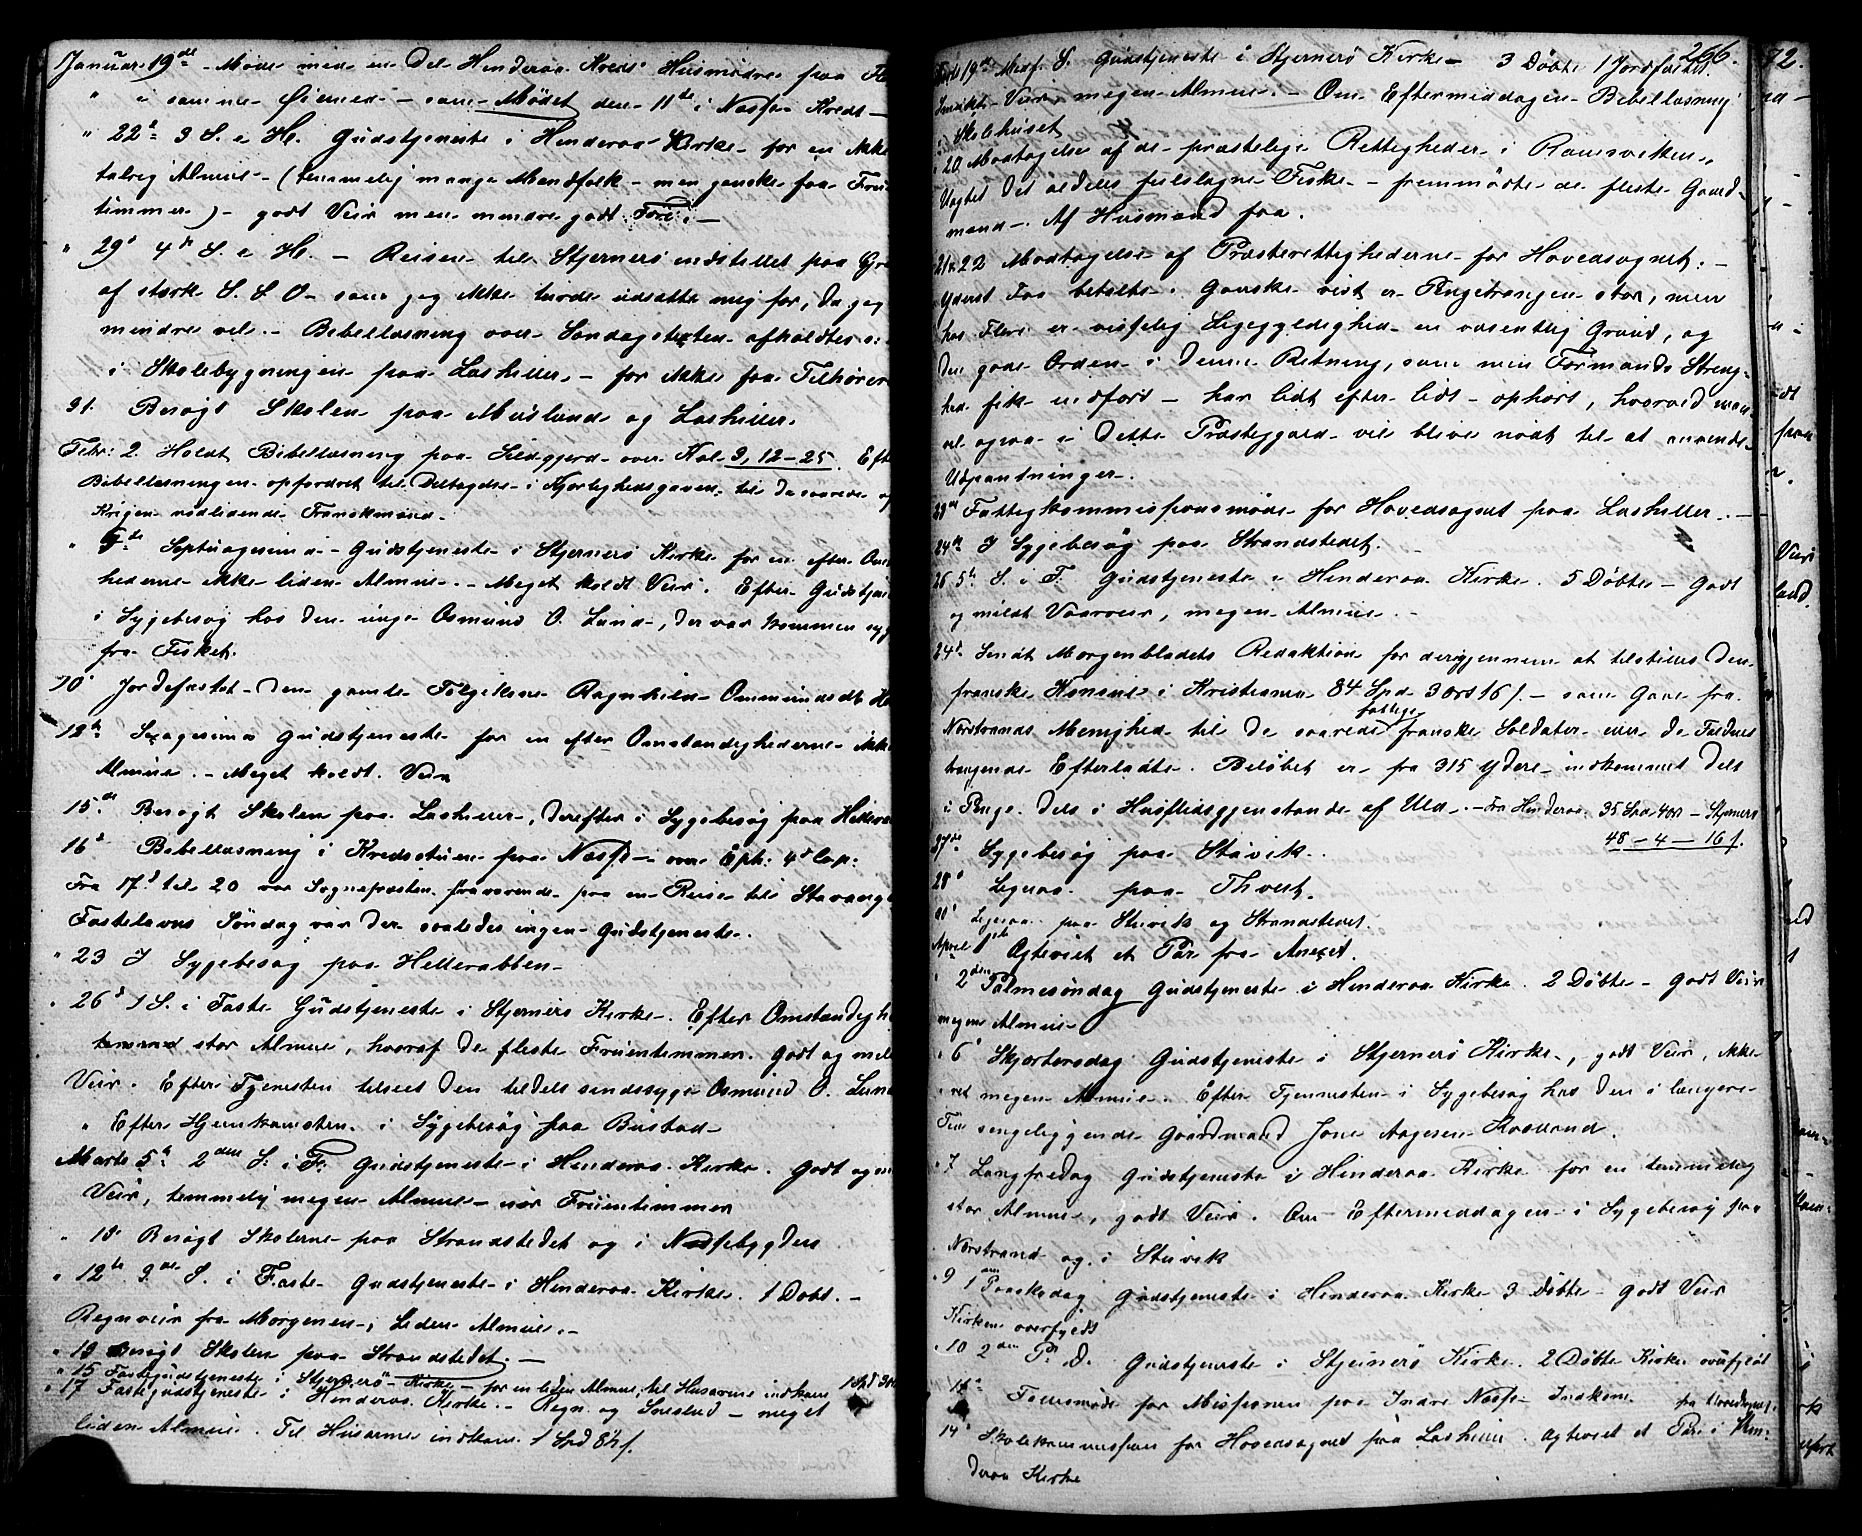 Januar 19de Møde med en Del Hinderaa Kreds' Husmødre paa
" i samme Øiemed - som Mødet den 11te i Næsse Kreds -
" 22de 3 S. e. H. Gudstjeneste i Hinderaa Kirke for en ikke
talrig Almue - (temmelig mange Mandfolk - men ganske faa Fruen
timmer) - godt Veir men mindre godt Føre. -
" 29de 4de S. e. H. - Reisen til Stjernerø indstillet paa Gr
af stærk S. S. O - som jeg ikke turde udsætte mig for, da jeg
mindre vel. - Bibellæsning over Søndagstexten afholdtes
i Skolebygningen paa Lasheller - for ikke faa Tilhører
31. Besøgt Skolen paa Mærland og Lasheller.
Febr: 2. Holdt Bibellæsning paa Leidgjerd over Kol. 3, 12-25. Eft
Bibellæsningen opfordret til Deltagelse i Kjærlighedsgaven til de saarede og
Krigen nødlidende Franskmænd.
" 5te Septuagesima - Gudstjeneste i Stjernerø Kirke for en efter Om
hederne ikke liden Almue. - Meget koldt Veir. Efter Gudstjen
i Sygebesøg hos den unge Osmund O. Lund, der var kommen syg
fra Fisket.
10de Jordfæstet den gamle Følgekone Ragnhild Ommundsdt. H
12te Sexagesima Gudstjeneste for en efter Omstændighederne ikke
Almue. - Meget koldt Veir
15de Besøgt Skolen paa Lasheller, derefter i Sygebesøg paa Helleva
16de Bibellæsning i Kredsstuen paa Næsse - over Eph: 4de Cap:
Fra 17de til 20 var Sognepræsten fraværende paa en Reise til Stavanger
Fastelavns Søndag var der saaledes ingen Gudstjeneste.
" 23 I Sygebesøg paa Hellerabben
" 26de 1 S. i Faste Gudstjeneste i Stjernerø Kirke. Efter Omstændigh
temmel stor Almue, hvoraf de fleste Fruentimmer. Godt og mil
Veir. Efter Tjenesten tilseet den tildels sindssyge Osmund O. Lund
" Efter Hjemkomsten i Sygebesøg paa Bustad
Marts 5te 2den S. i F. Gudstjeneste i Hinderaa Kirke. Godt og m
Veir, temmelig megen Almue - især Fruentimmer
" 10. Besøgt Skolerne paa Strandstedet og i Nessebygden
" 12te 3de S. i Faste Gudstjeneste i Hinderaa Kirke. 1 Døbt. -
Regnveir fra Morgenen, liden Almue. -
" 13 Besøgt Skolen paa Strandstedet. -
" 15 Fastegudstjeneste i Stjernerø Kirke - for en liden Almue, til Husarme indkom 1 Spd
" 17 Fastegudstjeneste i Hinderaa Kirke. - Regn og Sneslud - meget
liden Almue. Til Husarme indkom 1 Spd 8½ s.
266.
Marts 19de Midf. S. Gudstjeneste i Stjernerø Kirke - 3 Døbte 1 Jordfæstet.
Smukt Veir, megen Almue. - Om Eftermiddagen Bibellæsning
i Skolehuset
20 Modtagelse af de præstelige Rettigheder i Ramsvikken.
Uagtet det aldeles feilslagne Fiske - fremmødte de fleste Gaard-
mænd. Af Husmænd faa.
21 & 22 Modtagelse af Præsterettighederne for Hovedsognet. -
Yderst Faa betalte. Ganske vist er Pengetrangen stor, men
hos Flere er visselig Ligegyldighed en væsentlig Grund, og
den gode Orden i denne Retning, som min Formands Streng-
hed fik indført - har lidt efter lidt ophørt, hvorved man
vel ogsaa i dette Præstegjæld vil blive nødt til at anvende
Udpantninger.
23de Fattigkommissionsmøde for Hovedsognet paa Lasheller. -
24de I Sygebesøg paa Strandstedet.
26 5te S. i F. Gudstjeneste i Hinderaa Kirke. 5 Døbte - Godt
og mildt Vaarveir, megen Almue. -
24de Sendt Morgenbladets Redaktion for derigjennem at tilstilles den
franske Konsul i Kristiania 84 Spd 3 ort 16 s. - som Gave fra
Nerstrands Menighed til de saarede fattige franske Soldater eller de Faldnes
trængende Efterladte. Beløbet er fra 315 Ydere indkommet dels
i Penge dels i Husflidsgjenstande af Uld. - Fra Hinderaa 35 Spd 4 ort - Stjernerø
48 - 4 - 16 s.
27de Sygebesøg paa Støvik.
28de Ligesaa paa Thvedt.
30de Ligesaa paa Støvik og Strandstedet.
April 1ste Ægteviet et Par fra Anexet.
" 2den Palmesøndag Gudstjeneste i Hinderaa Kirke. 2 Døbte - Godt Veir
megen Almue
" 6te Skjærtorsdag Gudstjeneste i Stjernerø Kirke, godt Veir, ikke
ret megen Almue. Efter Tjenesten i Sygebesøg hos den i længere
Tid sengeliggende Gaardmand Jone Aagesen
" 7 Langfredag Gudstjeneste i Hinderaa Kirke for en temmelig
stor Almue, godt Veir. Om Eftermiddagen i Sygebesøg paa
Nerstrand og i Støvik
" 9 1ste Paaskedag Gudstjeneste i Hinderaa Kirke 3 Døbte - Godt Veir
Kirken overfyldt
" 10 2den P. D. Gudstjeneste i Stjernerø Kirke. 2 Døbte Kirken overfyldt
11te Fællesmøde for Missionen paa Indre Næsse Indkom
14de Skolekommission for Hovedsognet paa Lasheller. Ægteviet et Par i Hin-
deraa Kirke